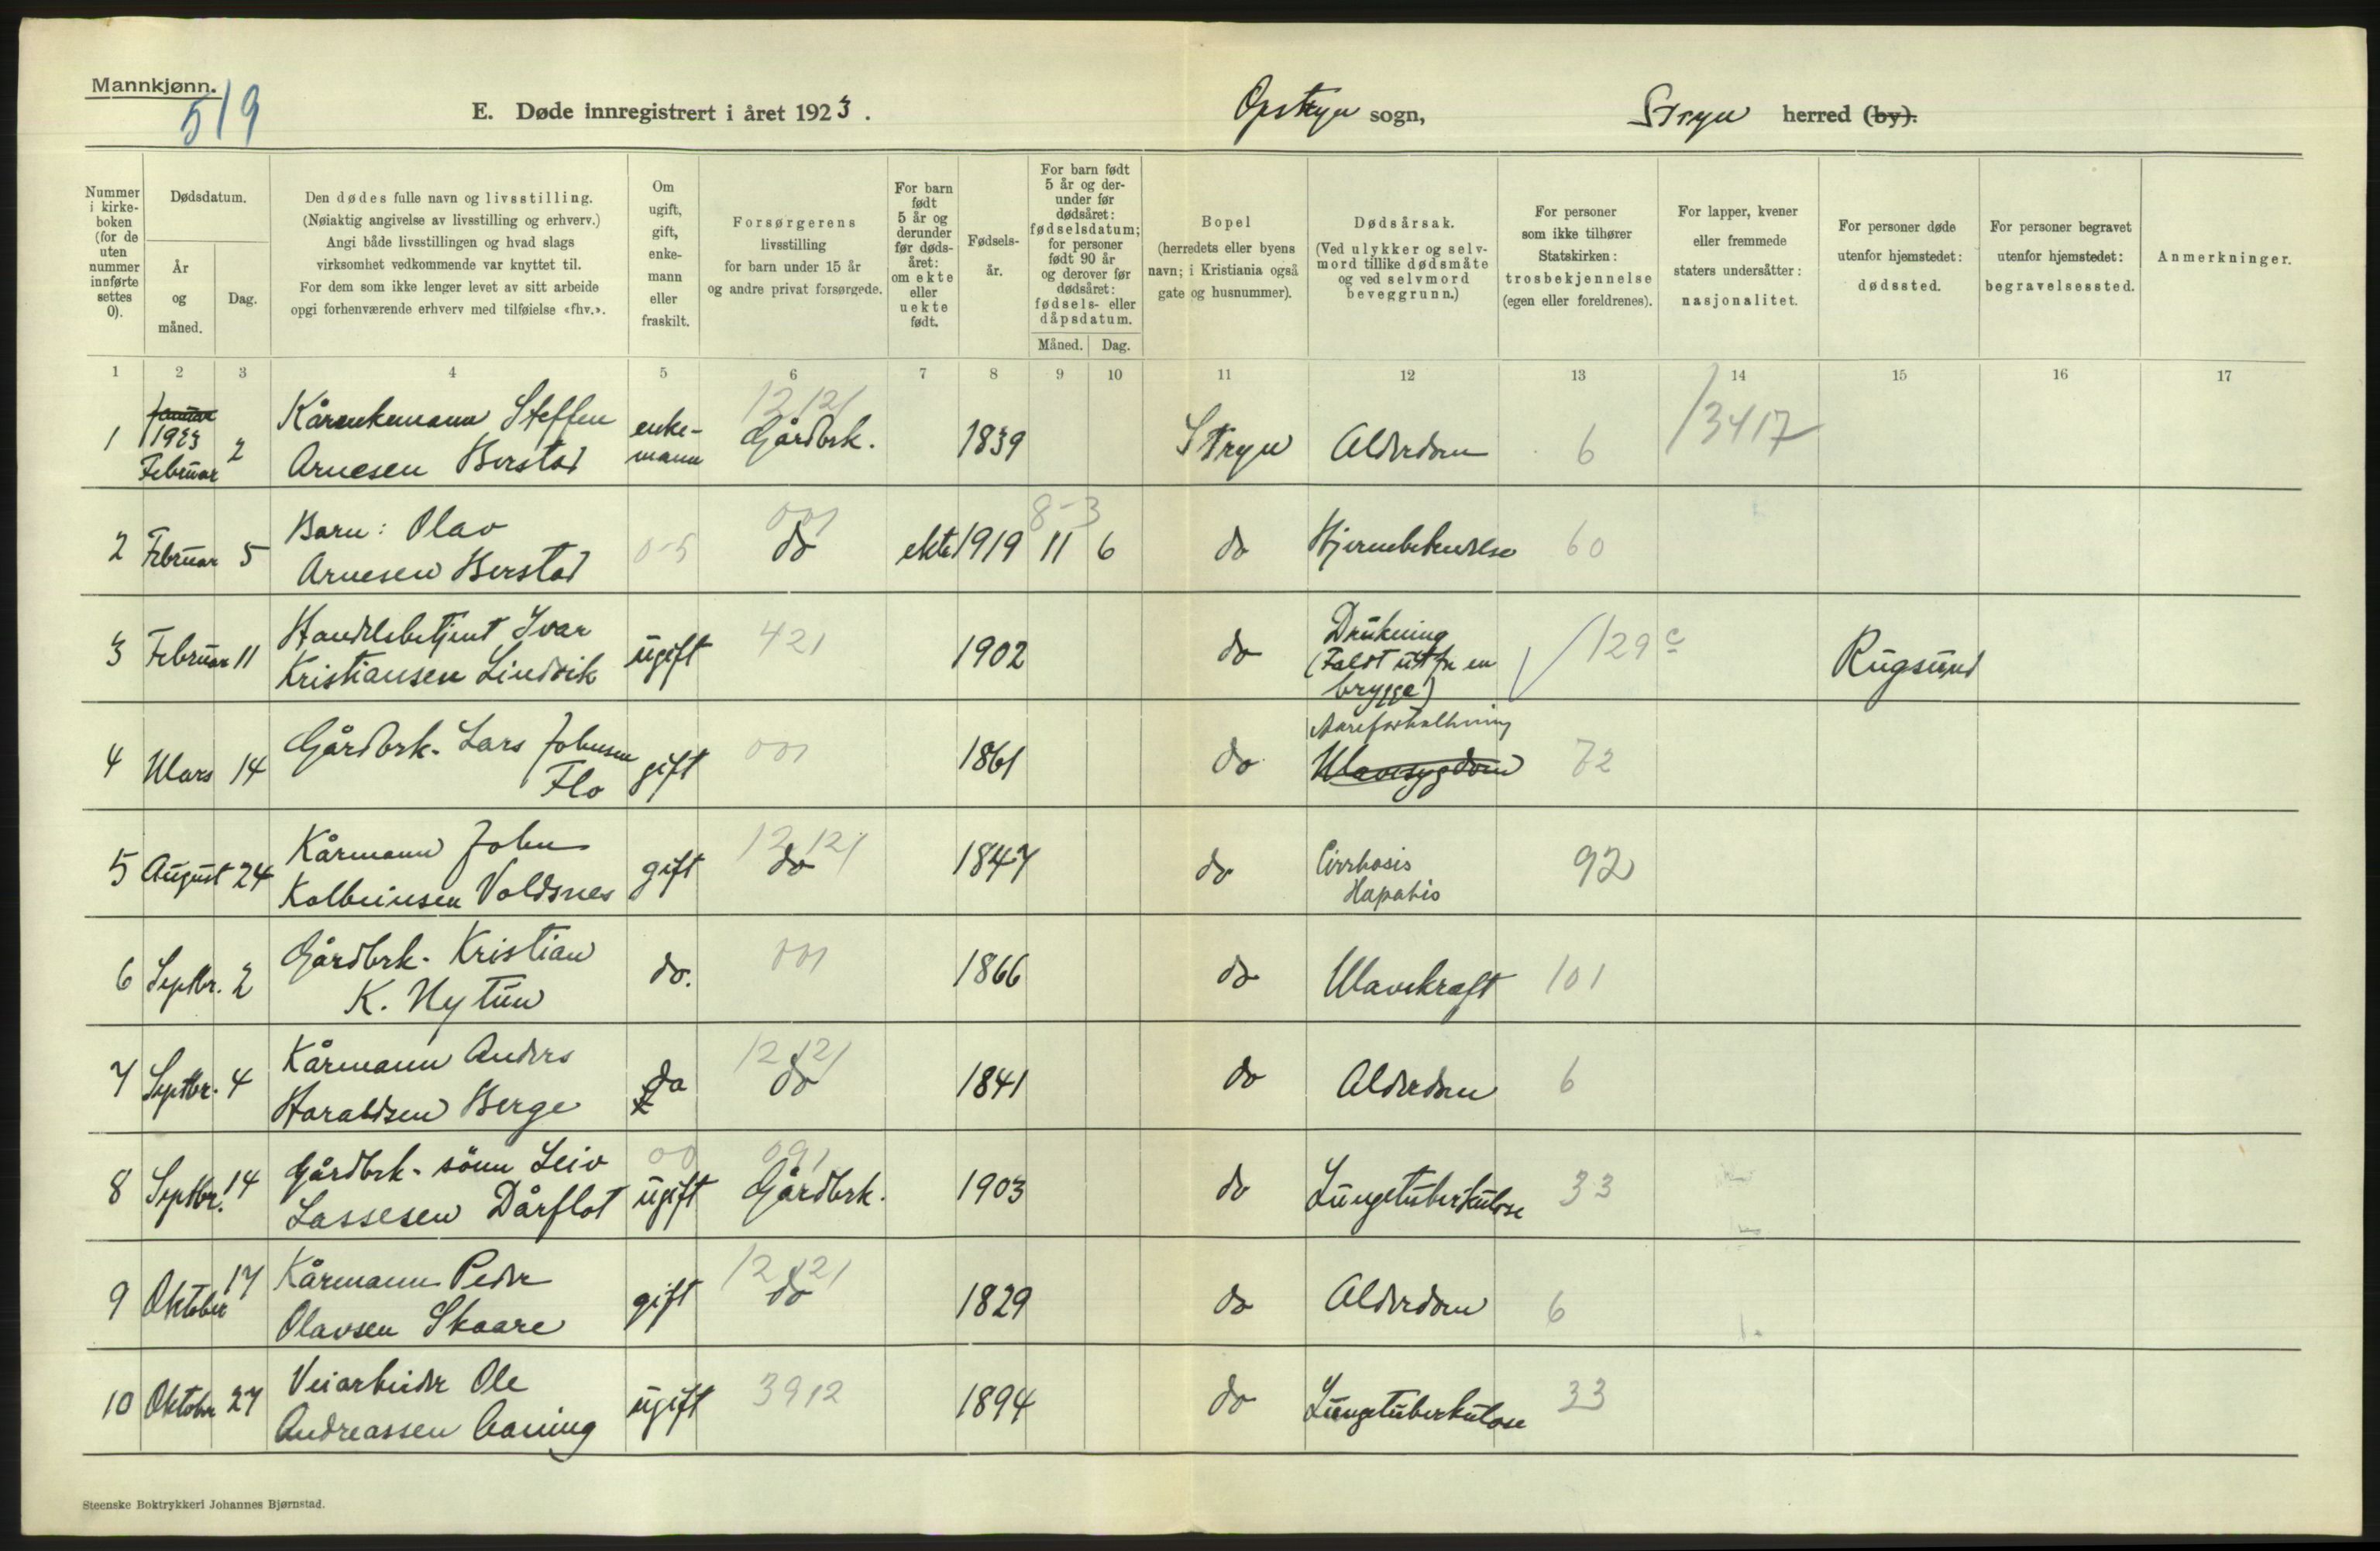 Mannkjønn.
519
E. Døde innregistrert i året 1923.
Opstryn sogn,
Stryn herred (by).
Nummer i kirke-boken (for de uten nummer innførte settes 0).
Dødsdatum.
År og måned.
Dag.
Den dødes fulle navn og livsstilling.
(Nøiaktig angivelse av livsstilling og erhverv.)
Angi både livsstillingen og hvad slags
virksomhet vedkommende var knyttet til.
For dem som ikke lenger levet av sitt arbeide
opgi forhenværende erhverv med tilføielse «fhv.».
Om ugift, gift, enke-mann eller fraskilt.
Forsørgerens
livsstilling
for barn under 15 år
og andre privat forsørgede.
For barn født 5 år og derunder før døds-året: om ekte eller uekte født.
Fødsels-år.
For barn født 5 år og der-under før dødsåret: fødselsdatum; for personer født 90 år og derover før dødsåret: fødsels- eller dåpsdatum.
Måned.
Dag.
Bopel
(herredets eller byens
navn; i Kristiania også
gate og husnummer).
Dødsårsak.
(Ved ulykker og selv-
mord tillike dødsmåte
og ved selvmord
beveggrunn.)
For personer
som ikke tilhører
Statskirken:
trosbekjennelse
(egen eller foreldrenes).
For lapper, kvener
eller fremmede
staters undersåtter:
nasjonalitet.
For personer døde
utenfor hjemstedet:
dødssted.
For personer begravet
utenfor hjemstedet:
begravelsessted.
Anmerkninger.
1 2 3 4 5 6 7 8 9 10 11 12 13 14 15 16 17
1 Januar 1923 Februar 2 Kårenkemann Steffen Arnesen Berstad enke-mann 12121 Gårdbrk. 1839 Stryn Alderdom 6 13417
2 Februar 5 Barn: Olav Arnesen Berstad 0-5 001 do ekte 1919 8-3 11 6 do Hjernebetendelse 60
3 Februar 11 Handelsbetjent Ivar Kristiansen Lindvik ugift 421 1902 do Drukning (Faldt ut fra en brygge) 129 c Rugsund
4 Mars 14 Gårdbrk. Lars Johnsen Flo gift 001 1861 do Aareforkalkning Mavesygdom 72
5 August 24 Kårmann John Kolbeinsen Voldsnes gift 12121 do 1847 do Cirrhosis Hapatis 92
6 Septbr. 2 Gårdbrk. Kristian K. Nytun do. 001 1866 do Mavekræft 101
7 Septbr. 4 Kårmann Anders Haraldsen Berge do 12121 do 1841 do Alderdom 6
8 Septbr. 14 Gårdbrk. sönn Leiv Lassesen Dårflot 00 ugift 091 Gårdbrk. 1903 do Lungetuberkulose 33
9 Oktober 17 Kårmann Peder Olavsen Skaare gift 12121 do 1829 do Alderdom 6
10 Oktober 27 Veiarbeider Ole Andreassen Aaning ugift 3912 1894 do Lungetuberkulose 33
Steenske Boktrykkeri Johannes Bjørnstad.